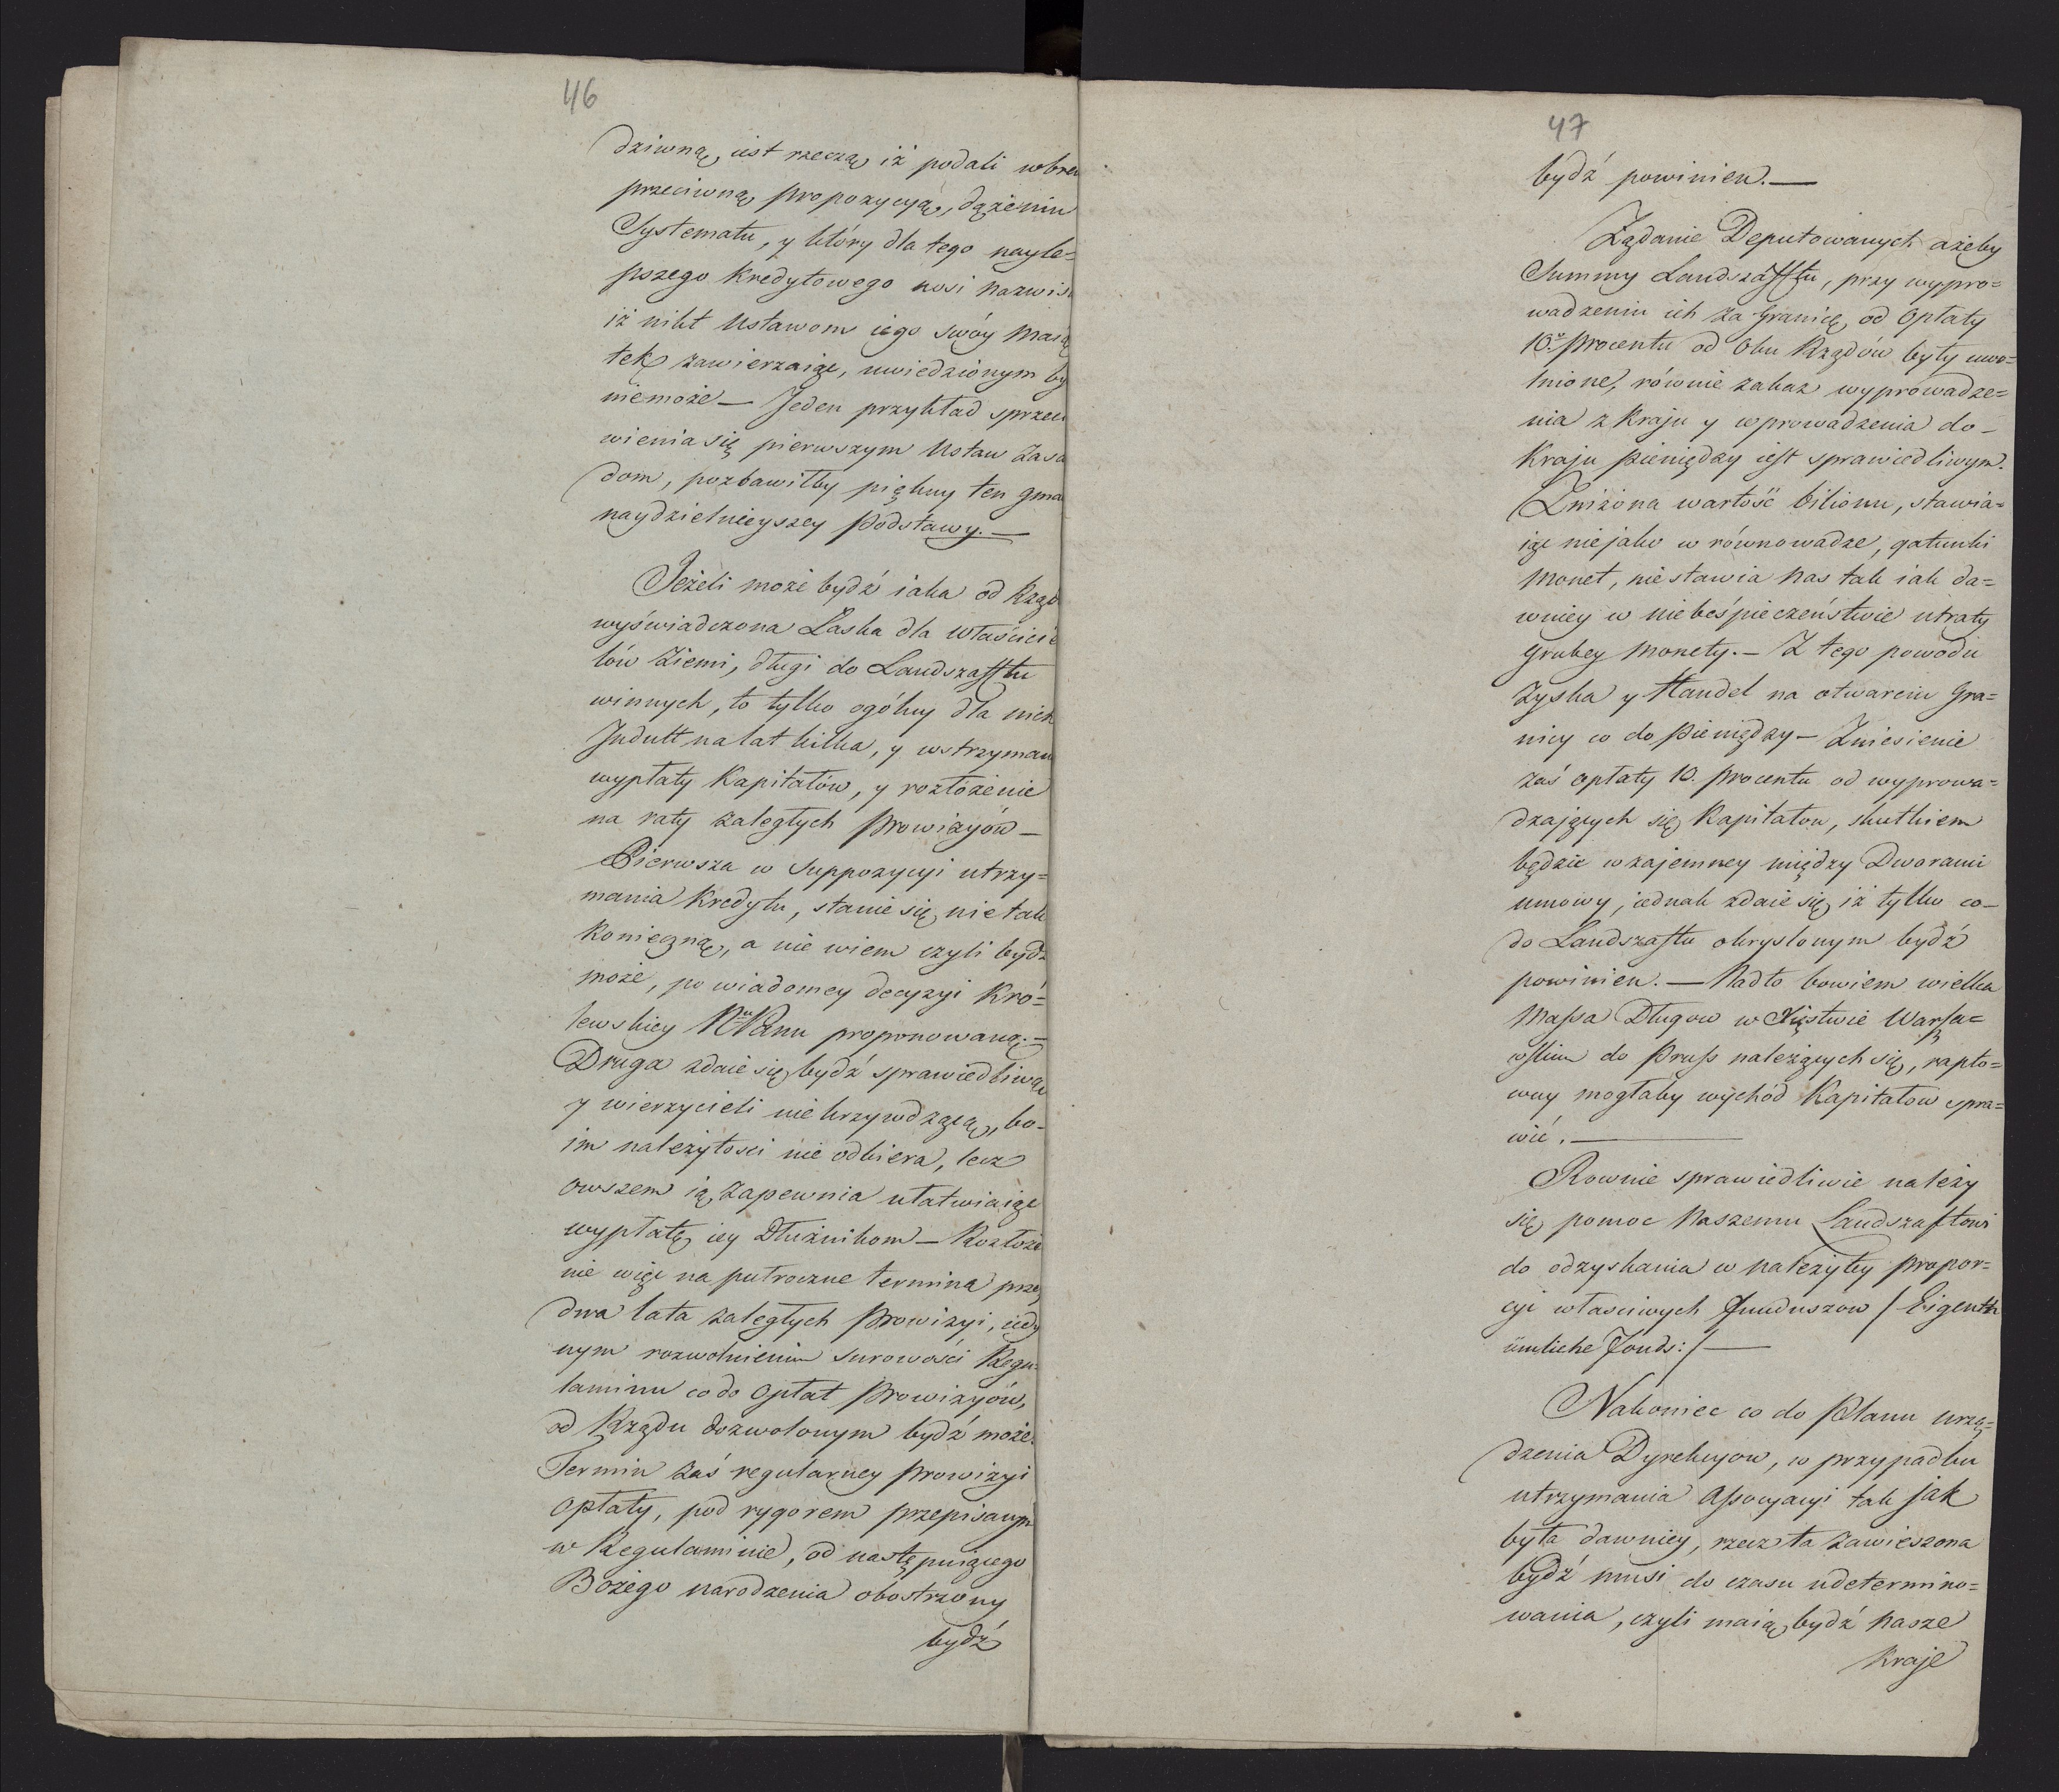 46
dziwną iest rzeczą iż podali wbrew
przeciwną propozycyą, dążeniu
Systematu, y który dla tego nayle=
pszego kredytowego nosi nazwis
iż nikt Ustawom iego swóy maią
tek zawierzaiąc, uwiedzionym by
niemoże — Jeden przykład sprzeci
wienia się pierwszym Ustaw Zasa
dom, pozbawiłby piękny ten gma
naydzielnieyszey podstawy. —
Jeżeli może bydź iaka od Rząd
wyświadczona Łaska dla właścicie
lów Ziemi, długi do Landszafftu
winnych, to tylko ogólny dla nich
Indult na lat kilka, y wstrzyman
wypłaty Kapitałów, y rozłożenie
na raty zaległych prowizyów —
Pierwsza w Suppozycyi utrzy=
mania Kredytu, stanie się nie tak
konieczną, a nie wiem czyli bydź
może, po wiadomey decyzyi Kró=
lewskiey NPanu proponowaną. —
Druga zdaie się bydź sprawiedliwą
y wierzycieli nie krzywdzącą, bo-
im należytosci nie odbiera, lecz
owszem ią zapewnia ułatwiaiąc
wypłatę iey Dłużnikom — Rozłoże
nie więc na putroczne termina przez
dwa lata zaległych prowizyi, iedy
nym rozwolnieniem surowości Regu=
laminu co do opłat prowizyów,
od Rządu dozwolonym bydź może.
Termin zaś regularney prowizyi
opłaty, pod rygorem przepisanym
w Regulaminie, od następuiącego
Bożego narodzenia obostrzony
bydź
47
bydź powinien. —
Żądanie Deputowanych ażeby
Summy Landszafftu, przy wypro=
wadzeniu ich za Granicę, od Opłaty
10. procentu od Obu Rządów były uwo=
lnione, równie zakaz wyprowadze=
nia z kraju y wprowadzenia do-
kraju pieniędzy iest sprawiedliwym.
Zniżona wartość bilionu, stawia=
iąc niejako w równowadze, gatunki
monet, nie stawia nas tak iak da=
wniey w niebeśpieczeństwie utraty
grubey monety. — Z tego powodu
zyska y Handel na otwarciu Gra=
nicy co do pieniędzy — Zniesienie
zaś opłaty 10. procentu od wyprowa=
dzających się Kapitałow, skutkiem
będzie wzajemney między Dworami
umowy, iednak zdaie się iż tylko co-
do Landszaftu okryslonym bydź
powinien. — Nadto bowiem wielka
Massa Długow w Xięstwie Warsza=
wskim do Pruss należących się, rapto=
wny mogłaby wychód Kapitałow spra=
wić. —
Rownie sprawiedliwie należy
się pomoc naszemu Landszaftowi
do odzyskania w należytey propor=
cyi własciwych funduszow /Eigenth
ümliche Fonds:/ —
Nakoniec co do Planu urzą=
dzenia Dyrekcyow, w przypadku
utrzymania Assocyacyi tak jak
była dawniey, rzecz ta zawieszona
bydź musi do czasu udetermino=
wania, czyli maią bydź nasze
kraje